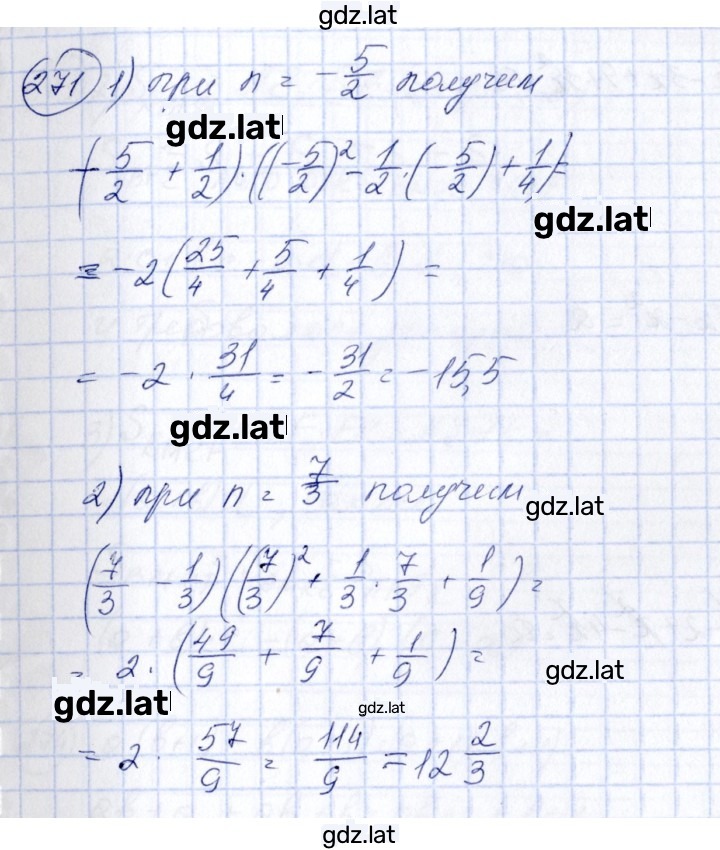 gdz.lat
271 1) при n = -5/2 получим
gdz.lat
(-5/2 + 1/2)·((-5/2)² - 1/2·(-5/2) + 1/4) =
gdz.lat
= -2(25/4 + 5/4 + 1/4) =
= -2 · 31/4 = -31/2 = -15,5
gdz.lat
2) при n = 7/3 получим
gdz.lat
(7/3 - 1/3)((7/3)² + 1/3 · 7/3 + 1/9) =
= 2·(49/9 + 7/9 + 1/9) =
gdz.lat
gdz.lat
gdz.lat
= 2 · 57/9 = 114/9 = 12 2/3
gdz.lat